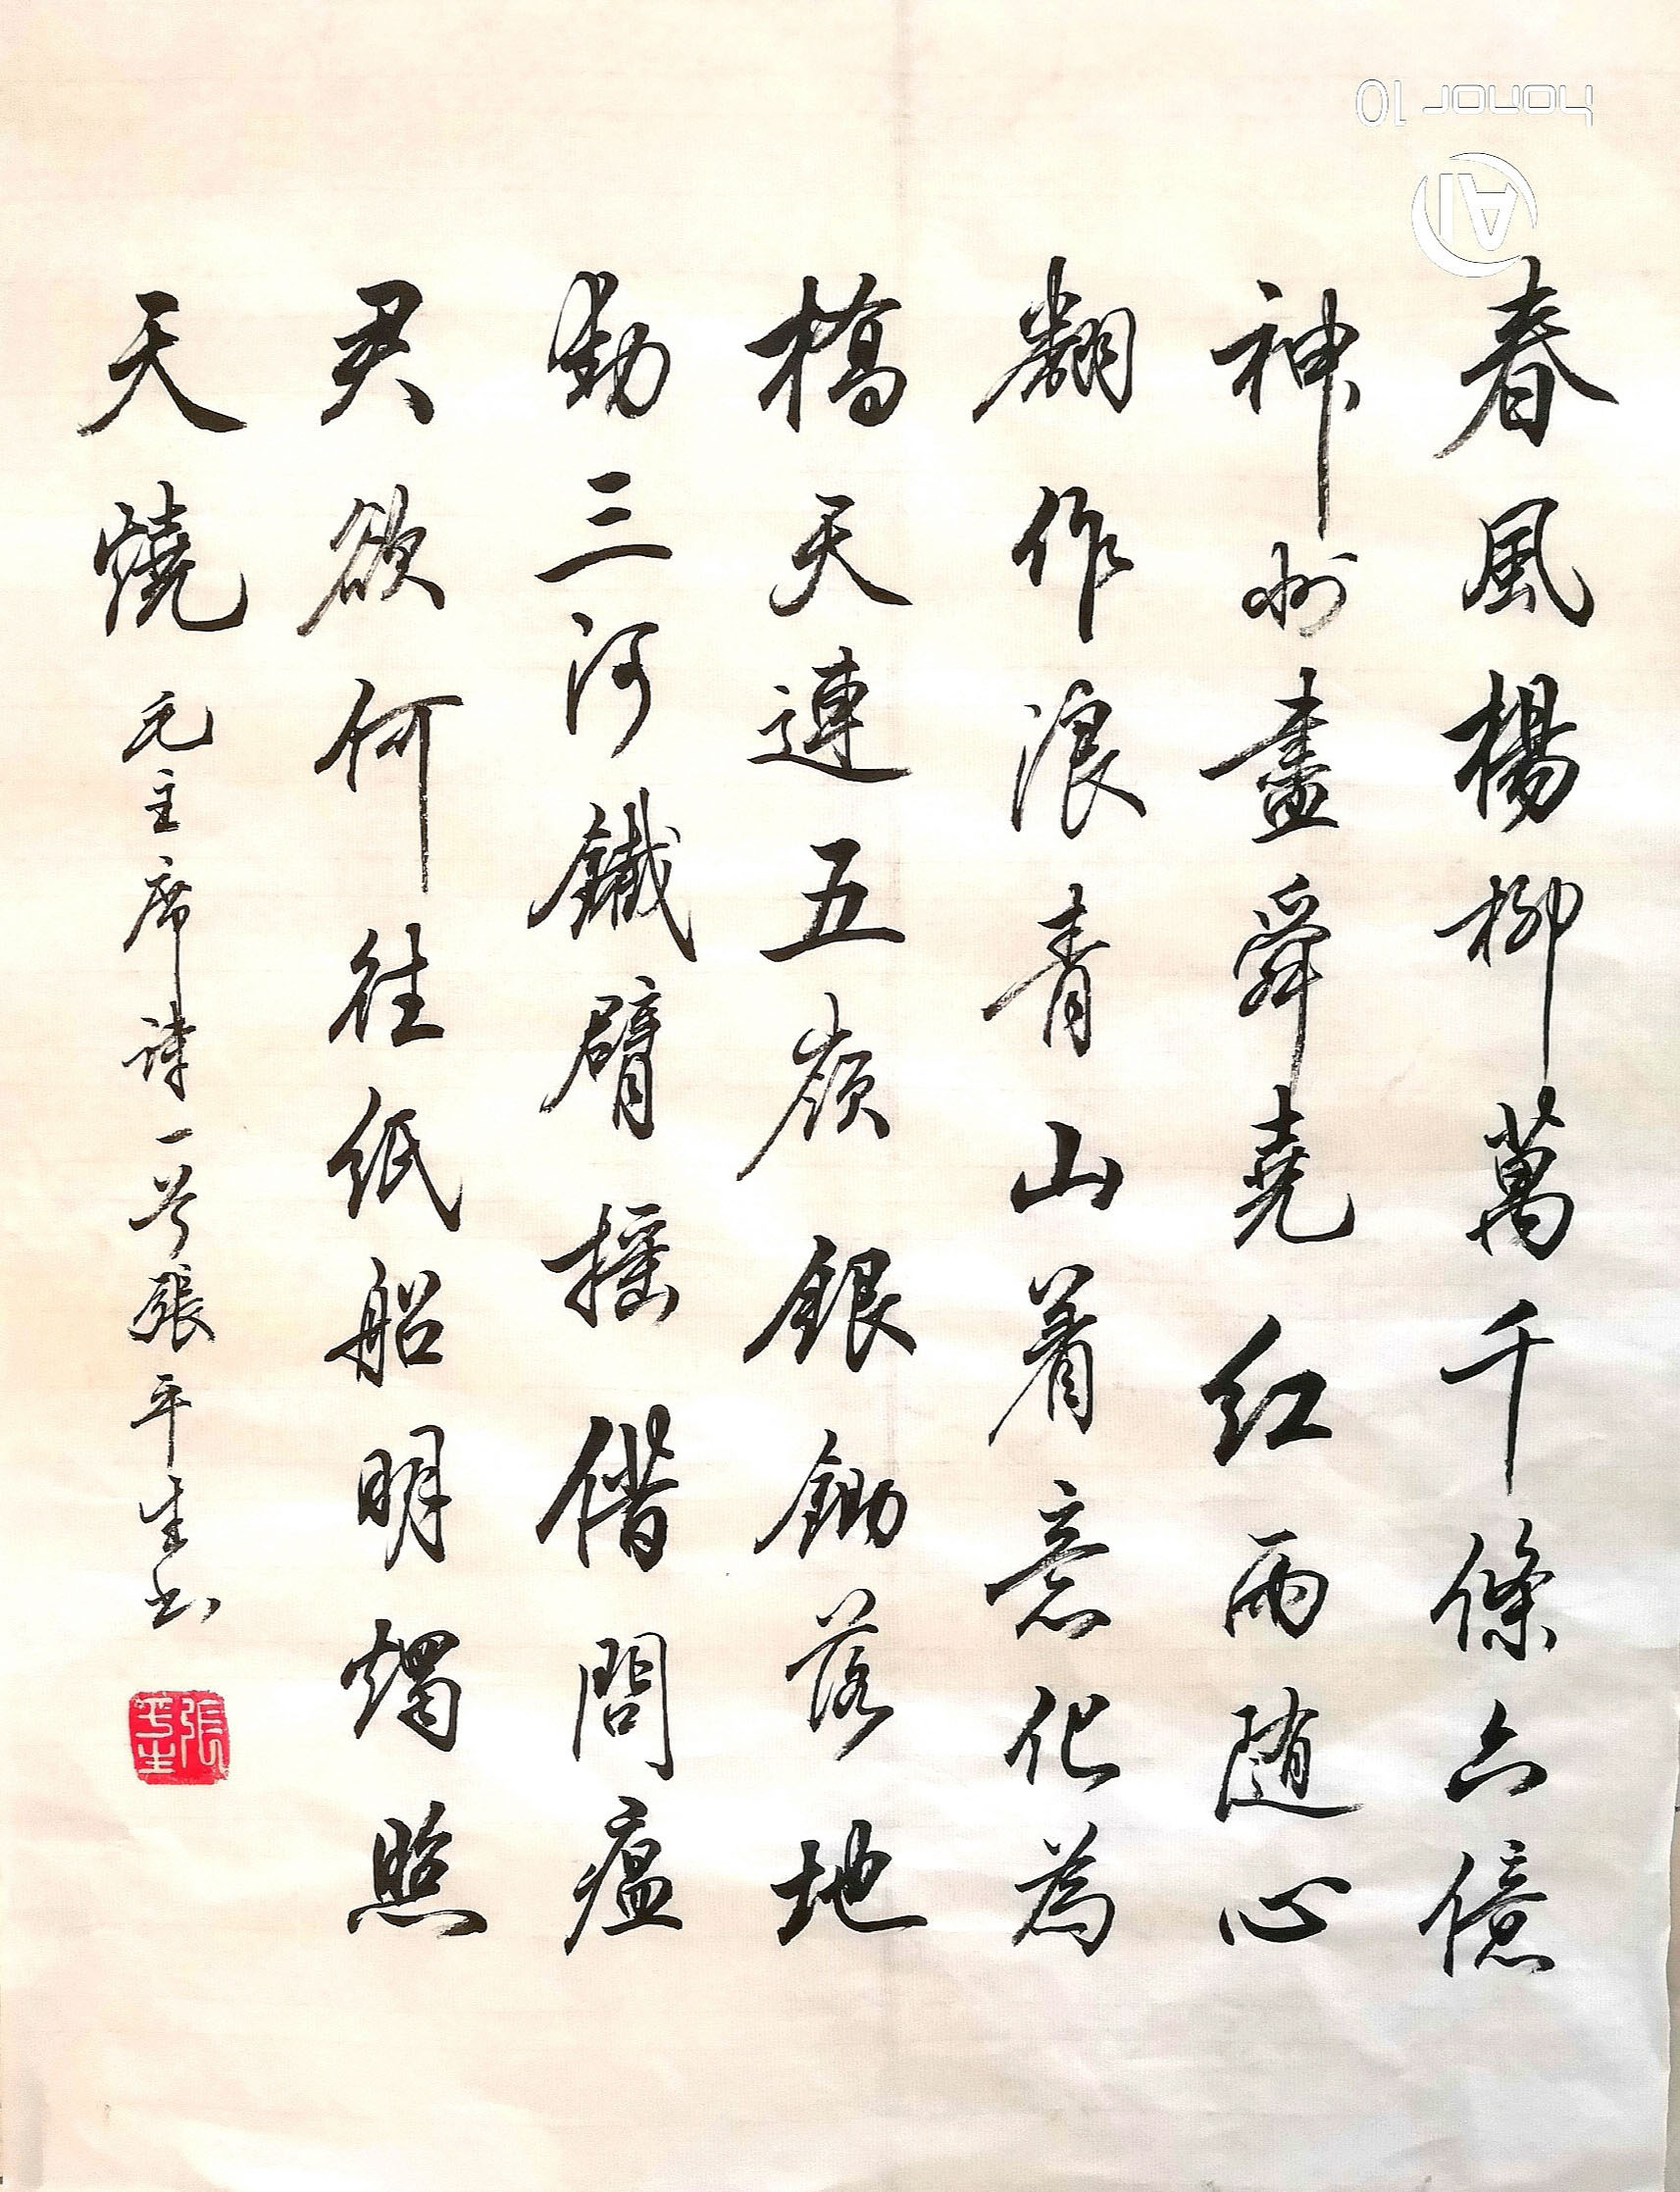 春風楊柳萬千條六億
神州盡舜堯紅雨随心
翻作浪青山着意化為
橋天連五嶺銀鋤落地
動三河鐵臂摇借問瘟
君欲何往纸船明燭照
天燒
毛主席詩一首張平生书
張平生
honor 10
AI